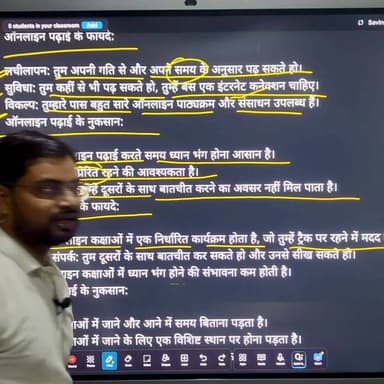 5 students in your classroom Add
Savin
ऑनलाइन पढ़ाई के फायदे:
लचीलापन: तुम अपनी गति से और अपने समय के अनुसार पढ़ सकते हो।
सुविधा: तुम कहीं से भी पढ़ सकते हो, तुम्हें बस एक इंटरनेट कनेक्शन चाहिए।
विकल्प: तुम्हारे पास बहुत सारे ऑनलाइन पाठ्यक्रम और संसाधन उपलब्ध हैं।
ऑनलाइन पढ़ाई के नुकसान:
पढ़ाई करते समय ध्यान भंग होना आसान है।
प्रेरित रहने की आवश्यकता है।
तुम्हें दूसरों के साथ बातचीत करने का अवसर नहीं मिल पाता है।
के फायदे:
कक्षाओं में एक निर्धारित कार्यक्रम होता है, जो तुम्हें ट्रैक पर रहने में मदद
संपर्क: तुम दूसरों के साथ बातचीत कर सकते हो और उनसे सीख सकते हो।
कक्षाओं में ध्यान भंग होने की संभावना कम होती है।
के नुकसान:
में जाने और आने में समय बिताना पड़ता है।
में जाने के लिए एक विशिष्ट स्थान पर होना पड़ता है।